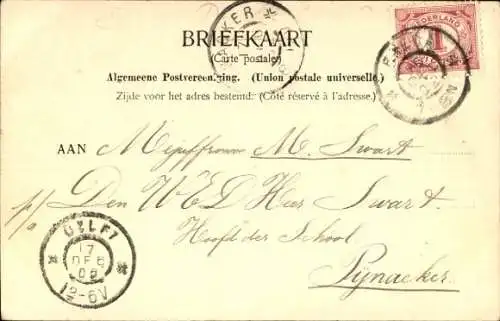 BRIEFKAART
(Carte postale)
Algemeene Postvereeniging. (Union postale universelle.)
Zijde voor het adres bestemd. (Côté réservé à l'adresse.)
NEDERLAND
1
AAN Mejuffrouw M. Swart
p/a Den WED Heer Swart
Hoofd der School
Pynacker.
DELFT
17
DEC
12-6V